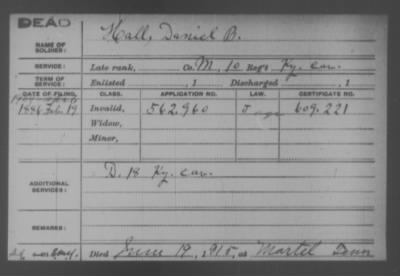 DEAD
NAME OF SOLDIER: Hall, Daniel B.
SERVICE: Late rank, Co. M, 10 Reg't Ky. Cav.
TERM OF SERVICE: Enlisted , 1 Discharged , 1
DATE OF FILING. CLASS. APPLICATION NO. LAW. CERTIFICATE NO.
1886 Feb. 19 Invalid, 562.960 609.221
Widow,
Minor,
ADDITIONAL SERVICES: D. 18 Ky. Cav.
REMARKS:
Died June 19, 1915, at Martel Tenn